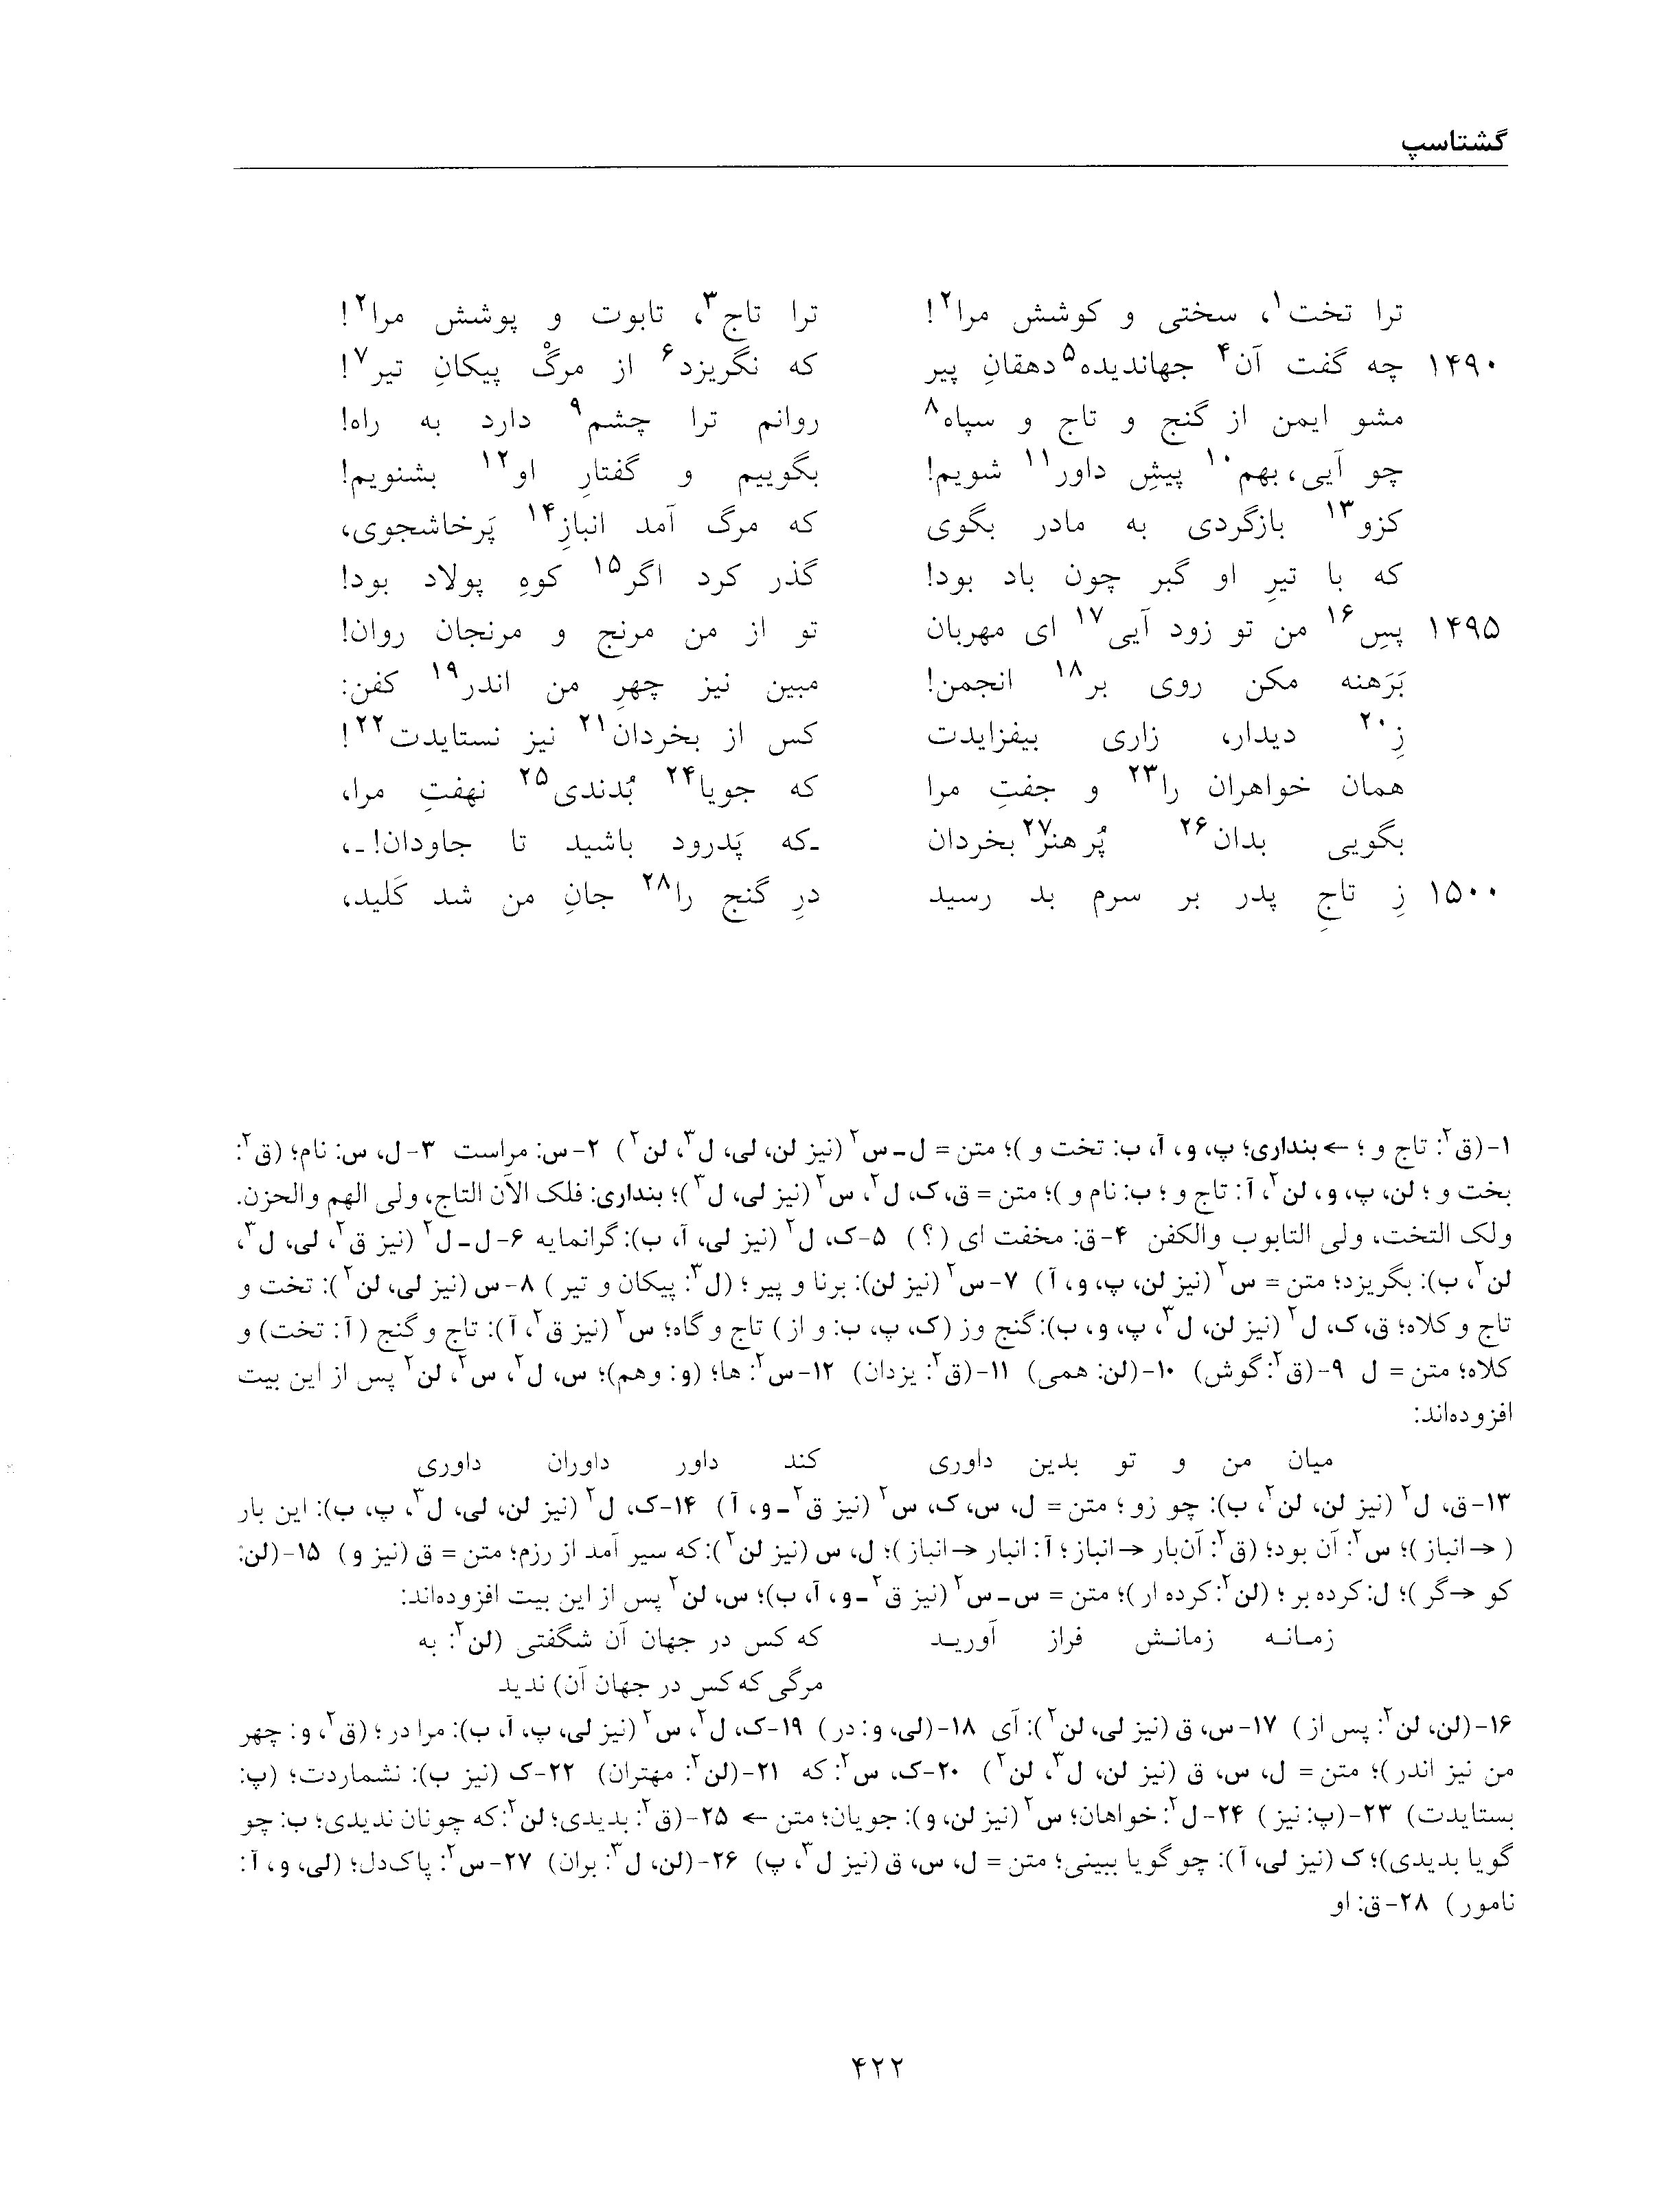 گشتاسپ
ترا تخت۱، سختی و کوشش مرا۲! ترا تاج۳، تابوت و پوشش مرا۲!
۱۴۹۰ چه گفت آن۴ جهاندیده۵ دهقانِ پیر که نگریزد۶ از مرگْ پیکانِ تیر۷!
مشو ایمن از گنج و تاج و سپاه۸ روانم ترا چشم۹ دارد به راه!
چو آیی، بهم۱۰ پیشِ داور۱۱ شویم! بگوییم و گفتارِ او۱۲ بشنویم!
کزو۱۳ بازگردی به مادر بگوی که مرگ آمد انبازِ۱۴ پَرخاشجوی،
که با تیرِ او گبر چون باد بود! گذر کرد اگر۱۵ کوهِ پولاد بود!
۱۴۹۵ پسِ۱۶ من تو زود آیی۱۷ ای مهربان تو از من مرنج و مرنجان روان!
بَرَهنه مکن روی بر۱۸ انجمن! مبین نیز چهرِ من اندر۱۹ کفن:
زِ۲۰ دیدار، زاری بیفزایدت کس از بخردان۲۱ نیز نستایدت۲۲!
همان خواهران را۲۳ و جفتِ مرا که جویا۲۴ بُدندی۲۵ نهفتِ مرا،
بگویی بدان۲۶ پُر هنر۲۷ بخردان ـ‌که پَدرود باشید تا جاودان! ـ،
۱۵۰۰ زِ تاجِ پدر بر سرم بد رسید درِ گنج را۲۸ جانِ من شد کَلید،
۱-(ق۲: تاج و ؛ ← بنداری؛ پ، و، آ، ب: تخت و )؛ متن = ل ـ س۲ (نیز لن، لی، ل۳، لن۲) ۲-س: مراست ۳-ل، س: نام؛ (ق۲:
بخت و ؛ لن، پ، و، لن۲، آ: تاج و ؛ ب: نام و )؛ متن = ق، ک، ل۲، س۲ (نیز لی، ل۳)؛ بنداری: فلک الآن التاج، ولی الهم والحزن.
ولک التخت، ولی التابوب والکفن ۴-ق: مخفت ای (؟) ۵-ک، ل۲ (نیز لی، آ، ب): گرانمایه ۶-ل ـ ل۲ (نیز ق۲، لی، ل۳،
لن۲، ب): بگریزد؛ متن = س۲ (نیز لن، پ، و، آ) ۷-س۲ (نیز لن): برنا و پیر ؛ (ل۳: پیکان و تیر ) ۸-س (نیز لی، لن۲): تخت و
تاج و کلاه؛ ق، ک، ل۲ (نیز لن، ل۳، پ، و، ب): گنج وز (ک، پ، ب: و از ) تاج و گاه؛ س۲ (نیز ق۲، آ): تاج و گنج ( آ: تخت) و
کلاه؛ متن = ل ۹-(ق۲: گوش) ۱۰-(لن: همی) ۱۱-(ق۲: یزدان) ۱۲-س۲: ها؛ (و: وهم)؛ س، ل۲، س۲، لن۲ پس از این بیت
افزوده‌اند:
میان من و تو بدین داوری کند داور داوران داوری
۱۳-ق، ل۲ (نیز لن، لن۲، ب): چو زو ؛ متن = ل، س، ک، س۲ (نیز ق۲ ـ و، آ) ۱۴-ک، ل۲ (نیز لن، لی، ل۳، پ، ب): این بار
( → انباز )؛ س۲: آن بود؛ (ق۲: آن‌بار → انباز ؛ آ: انبار → انباز )؛ ل، س (نیز لن۲): که سیر آمد از رزم؛ متن = ق (نیز و) ۱۵-(لن:
کو → گر )؛ ل: کرده بر ؛ (لن۲: کرده ار )؛ متن = س ـ س۲ (نیز ق۲ ـ و، آ، ب)؛ س، لن۲ پس از این بیت افزوده‌اند:
زمـانـه زمانـش فراز آوریـد که کس در جهان آن شگفتی (لن۲: به
مرگی که کس در جهان آن) ندید
۱۶-(لن، لن۲: پس از ) ۱۷-س، ق (نیز لی، لن۲): آی ۱۸-(لی، و: در ) ۱۹-ک، ل۲، س۲ (نیز لی، پ، آ، ب): مرا در ؛ (ق۲، و: چهر
من نیز اندر )؛ متن = ل، س، ق (نیز لن، ل۳، لن۲) ۲۰-ک، س۲: که ۲۱-(لن۲: مهتران) ۲۲-ک (نیز ب): نشماردت؛ (پ:
بستایدت) ۲۳-(پ: نیز ) ۲۴-ل۲: خواهان؛ س۲ (نیز لن، و): جویان؛ متن ← ۲۵-(ق۲: بدیدی؛ لن۲: که چونان ندیدی؛ ب: چو
گویا بدیدی)؛ ک (نیز لی، آ): چو گویا ببینی؛ متن = ل، س، ق (نیز ل۳، پ) ۲۶-(لن، ل۳: بران) ۲۷-س۲: پاک‌دل؛ (لی، و، آ:
نامور ) ۲۸-ق: او
۴۲۲